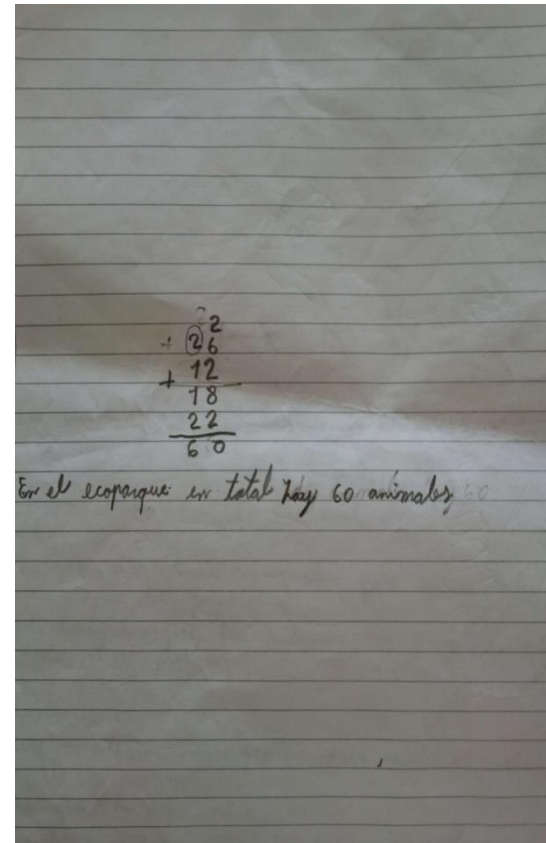 2
+ 26
+ 12
18
22
60
En el ecoparque en total hay 60 animales